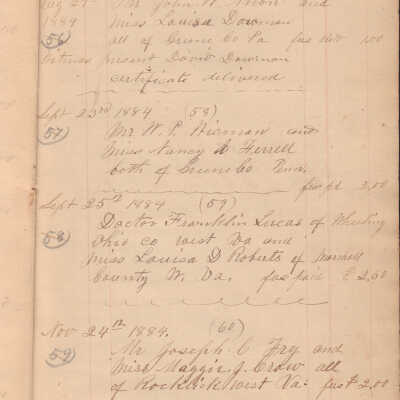 Aug 27th Mr John W. and
1884 Miss Louisa Dowman
(56) all of Green Co Pa fees
Witness present David Dowman
certificate delivered
Sept 23rd 1884 (58)
(57) Mr W. P. Hierman and
Miss Nancy A Ferrell
both of Greene Co Penn.
fees pd 2,00
Sept 25th 1884 (59)
Doctor Franklin Lucas of Wheeling
(58) Ohio co west Va and
Miss Louisa D Roberts of Marshall
County W. Va. fees paid $ 2,50
Nov 24th 1884. (60)
(59) Mr Joseph C Fry and
Miss Maggie J. Crow all
of Rocklick west Va: fees $ 2.00